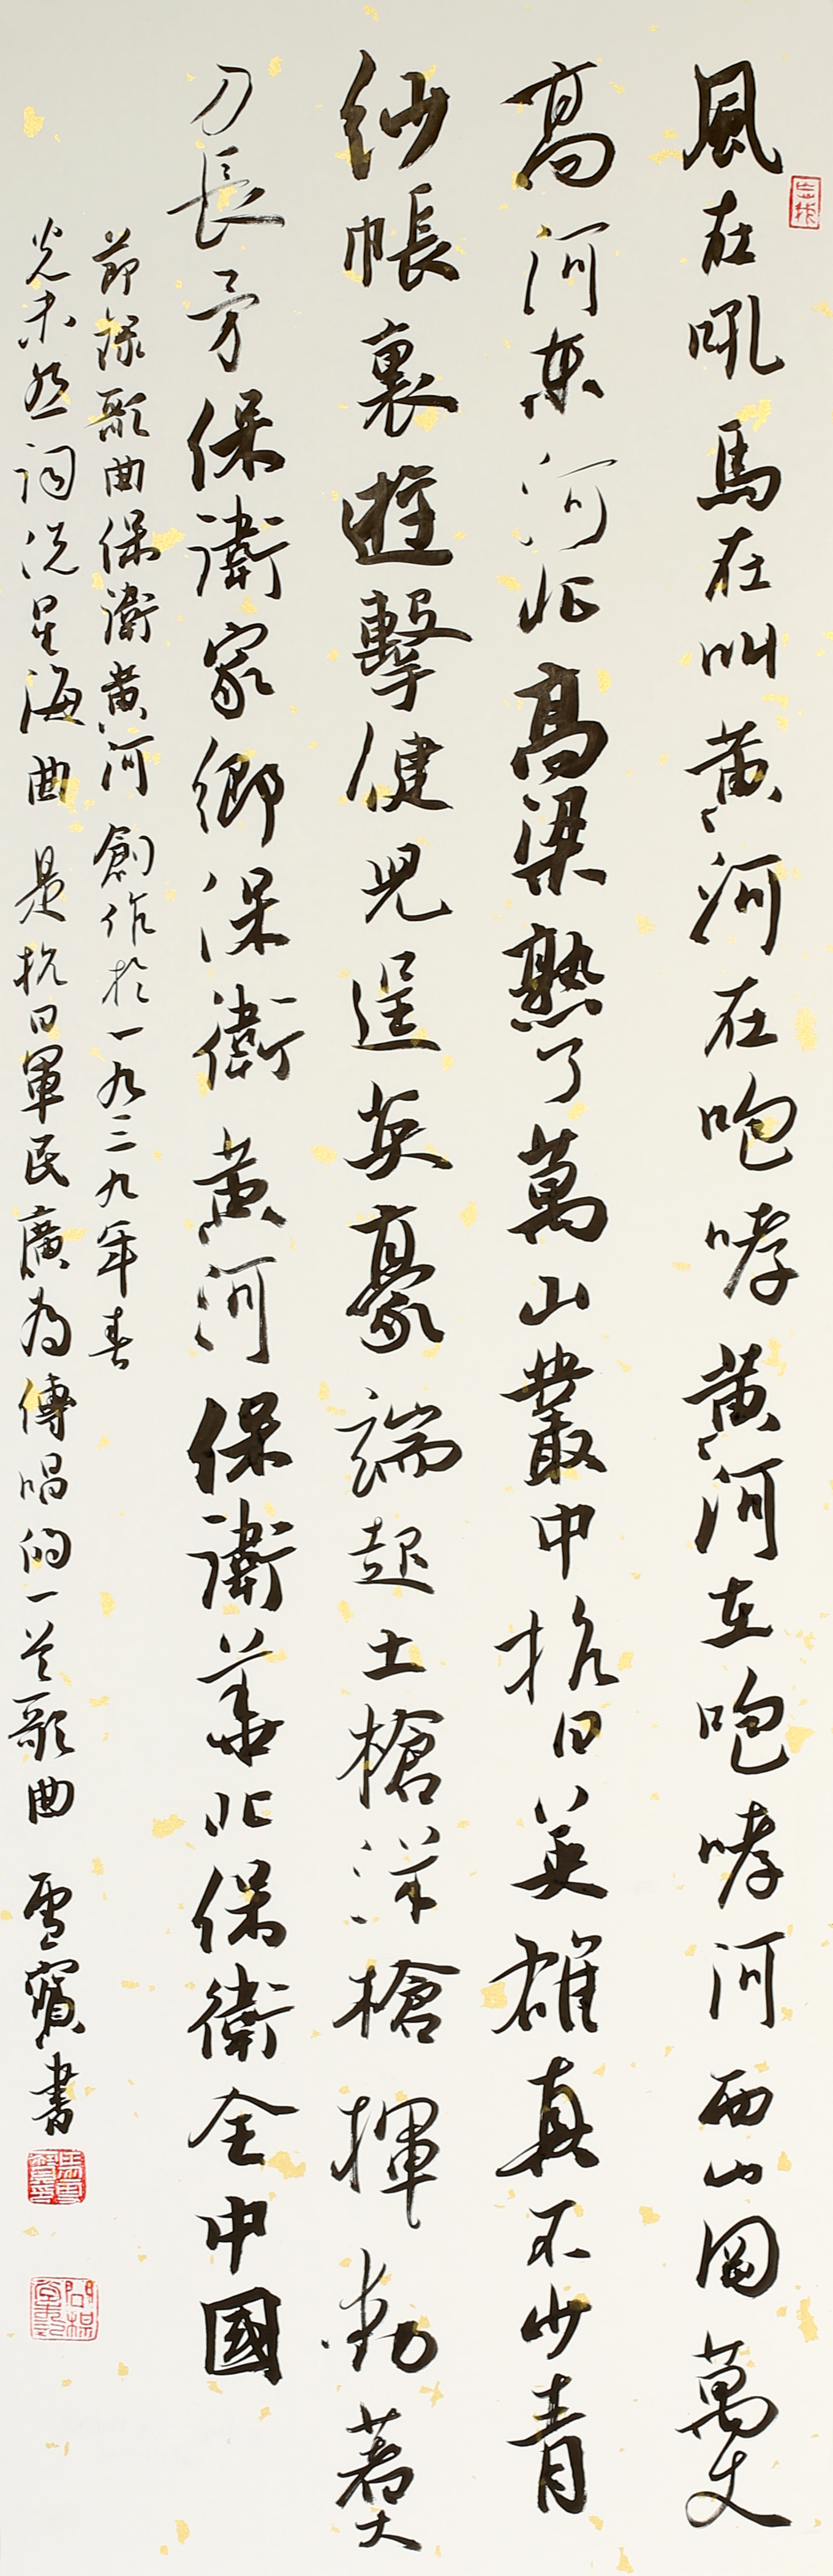 風在吼馬在叫黄河在咆哮黄河在咆哮河西山岡萬丈
高河東河北高梁熟了萬山叢中抗日英雄真不少青
紗帳裏遊擊健兒逞英豪端起土槍洋槍揮動著大
刀長矛保衛家鄉保衛黄河保衛華北保衛全中國
節録歌曲保衛黄河 創作於一九三九年春
光未然詞冼星海曲 是抗日軍民廣為傳唱的一首歌曲 雪寳書